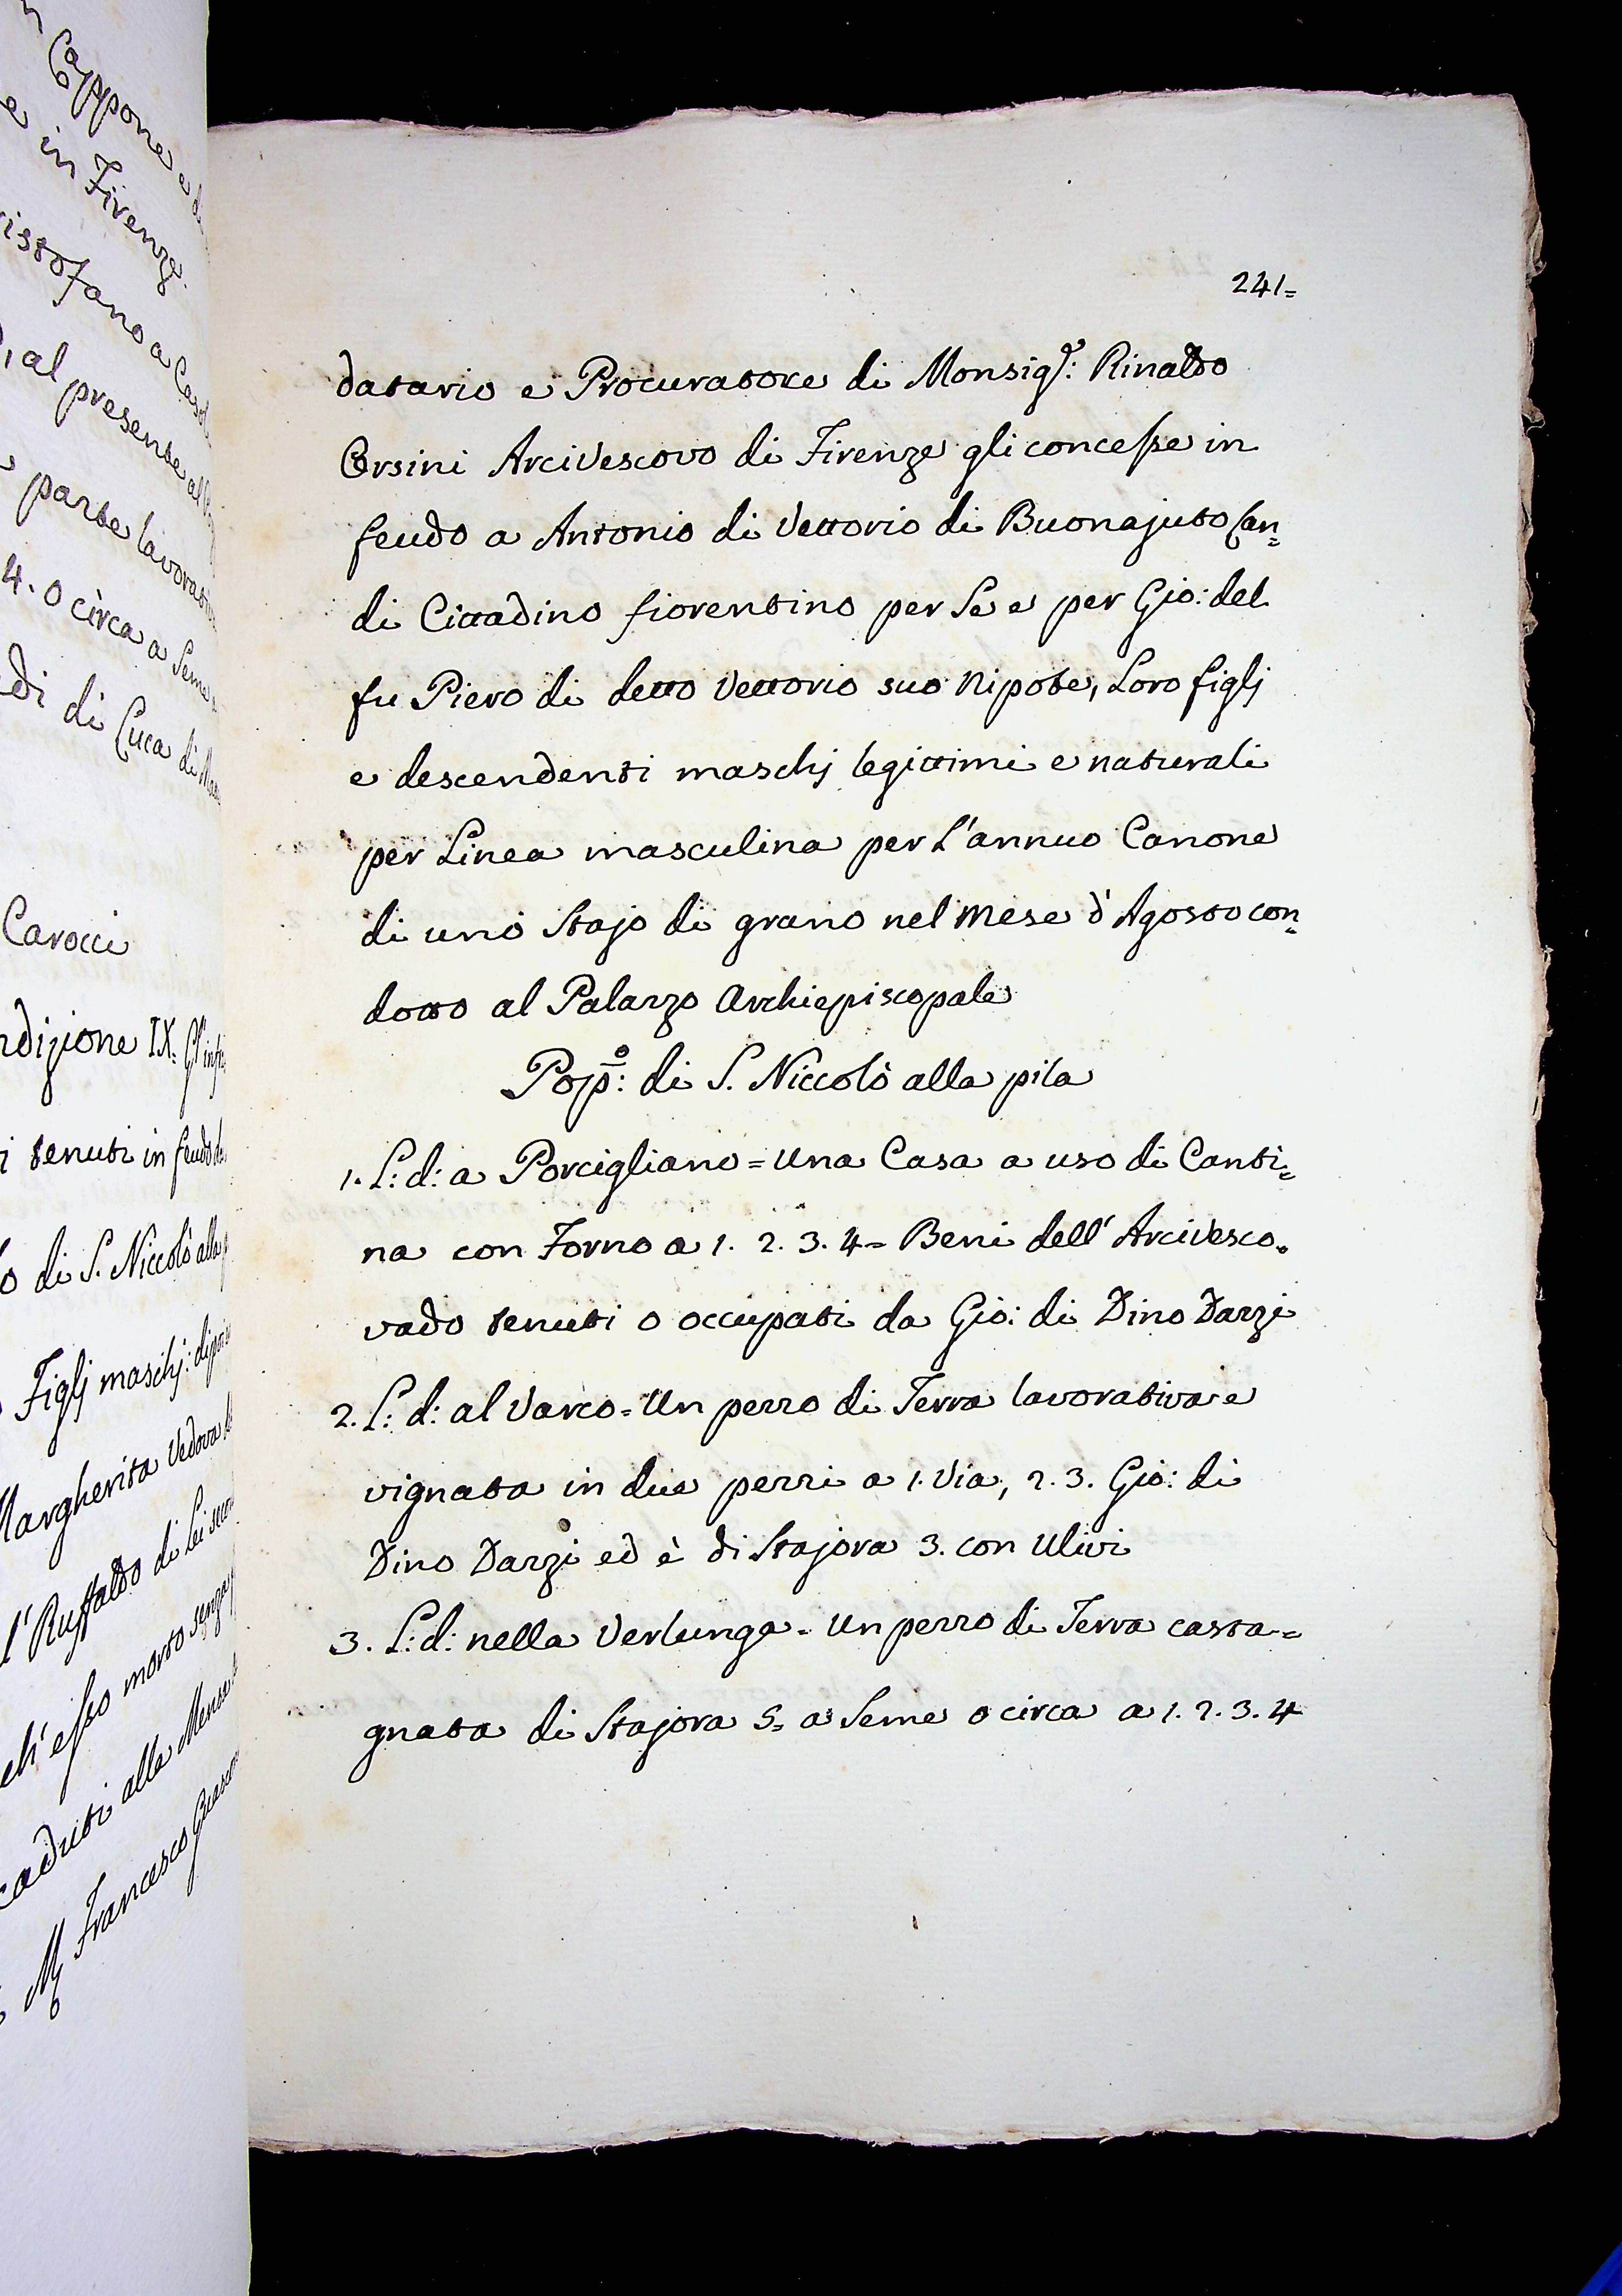 Cappone e
e in Firenze
al presente
parte lavorati
4. o circa a Seme
di di Luca di
Carocci
ndizione IX. Gl'inf
i tenuti in feudo de
o di S. Niccolò alla
Figlj maschj:
Margherita Vedova
l'Ruffaldo di Lei
ch'esso morto senza
caduti alla Mensa
Francesco
241=
datario e Procuratore di Monsigr.: Rinaldo
Orsini Arcivescovo di Firenze gli concesse in
feudo a Antonio di Vettorio di Buonajuto Lan=
di Cittadino fiorentino per Se e per Gio: del
fu Piero di detto Vettorio suo Nipote, Loro figlj
e descendenti maschj legittimi e naturali
per Linea masculina per L'annuo Canone
di uno Stajo di grano nel Mese d'Agosto con=
dotto al Palazzo Archiepiscopale
Popo: di S. Niccolò alla pila
1. L: d: a Porcigliano = Una Casa a uso di Canti=
na con Forno a 1. 2. 3. 4 = Beni dell'Arcivesco=
vado tenuti o occupati da Gio: di Dino Darzi
2. L: d: al Varco = Un pezzo di Terra lavorativa e
vignata in due pezzi a 1. Via, 2. 3. Gio: di
Dino Darzi ed è di Stajora 3. con Ulivi
3. L: d: nella Verlunga = Un pezzo di Terra casta=
gnata di Stajora 5= a Seme o circa a 1. 2. 3. 4